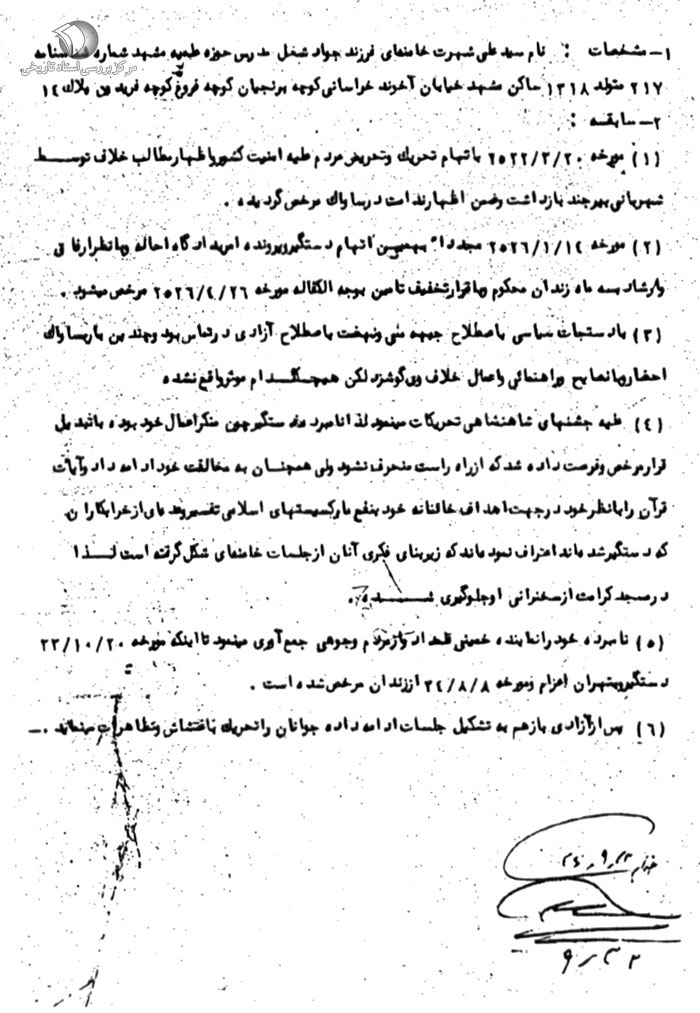 مرکز بررسی اسناد تاریخی
۱- مشخصات : نام سید علی شهرت خامنه‌ای فرزند جواد شغل مدرس حوزه علمیه مشهد شماره شناسنامه
۲۱۷ متولد ۱۳۱۸ ساکن مشهد خیابان آخوند خراسانی کوچه برنجیان کوچه فروغ کوچه فریدون پلاک ۱٤
۲- سابقه :
(۱) مورخه ۲۵۲۲/۳/۲۰ باتهام تحریك وتحریض مردم علیه امنیت کشورواظهارمطالب خلاف توسط
شهربانی بیرجند بازداشت وضمن اظهارندامت درساواك مرخص گردیده .
(۲) مورخه ۲۵۲۶/۱/۱٤ مجددا" بهمین اتهام دستگیروپرونده امربدادگاه احاله وبانظرارفاقی
وارشاد بسه ماه زندان محکوم وباقرارتخفیف تامین بوجه الکفاله مورخه ۲۵۲۶/٤/۲۶ مرخص میشود .
(۳) بادستجات سیاسی باصطلاح جبهه ملی ونهضت باصطلاح آزادی درتماس بود وچندین باربساواك
احضاروبانصایح وراهنمائی واعمال خلاف وی گوشزد لکن هیچکدام موثرواقع نشده
(٤) علیه جشنهای شاهنشاهی تحریکات مینمود لذا نامبرده دستگیرچون منکراعمال خود بوده باتبدیل
قرارمرخص وفرصت داده شد که ازراه راست منحرف نشود ولی همچنان به مخالفت خود ادامه داد وآیات
قرآن رابانظرخود درجهت اهداف خائنانه خود بنفع مارکسیستهای اسلامی تفسیروعده‌ای ازخرابکاران
که دستگیرشده‌اند اعتراف نموده‌اند که زیربنای فکری آنان ازجلسات خامنه‌ای شکل گرفته است لذا
درمسجد کرامت ازسخنرانی اوجلوگیری شده .
(۵) نامبرده خود رانماینده خمینی قلمداد وازمردم وجوهی جمع آوری مینمود تا اینکه مورخه ۲۳/۱۰/۲۰
دستگیروبتهران اعزام ومورخه ۳٤/۸/۸ اززندان مرخص شده است .
(۶) پس ازآزادی بازهم به تشکیل جلسات ادامه داده جوانان راتحریك باغتشاش وتظاهرات مینماید .-